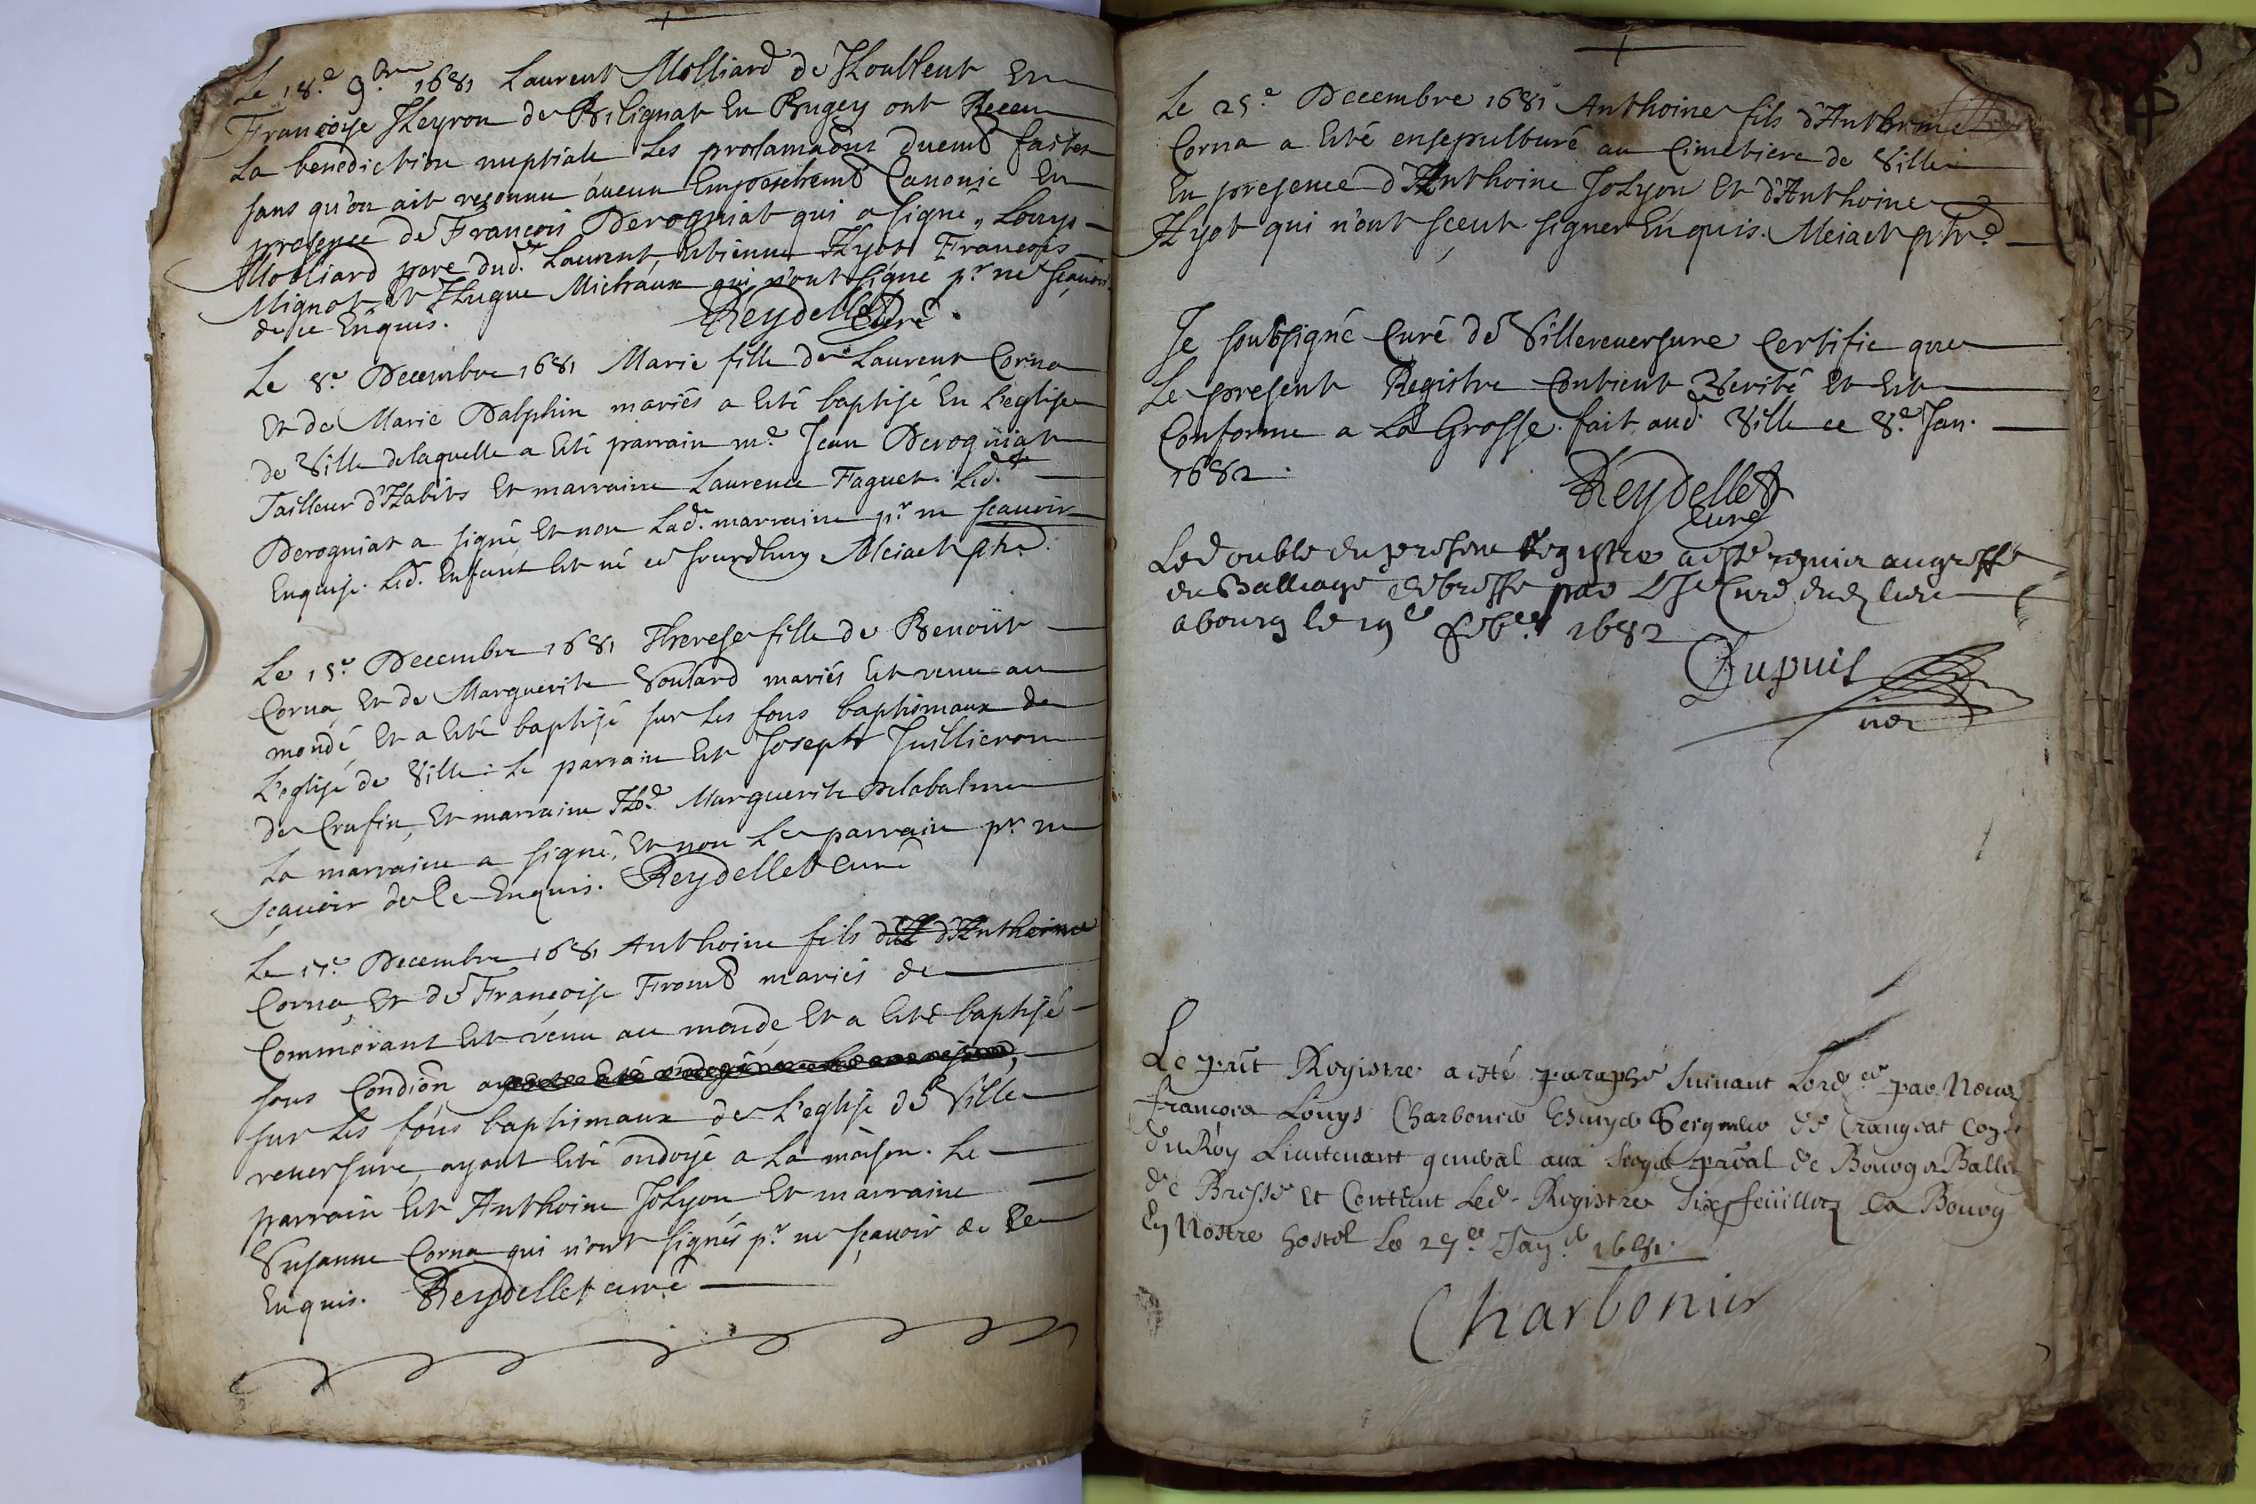 Le 18.e 9.bre 1681 Laurent Molliard de
Françoise Heyron de Bilignat en Bugey ont Receu
La benediction nuptiale Les proclamaõns duem̃t faites
sans qu'on ait reconnu aucun Empeschem̃t Canonic En
presence de François Derogniat qui a signé, Louys
Molliard pere dud.t Laurent, Estienne Hyot François
Mignot et Hugue Michaux qui n'ont signé p.r ne sçauoir
de ce Enquis. Reydellet Curé.
Le 8.e Decembre 1681 Marie fille de Laurent Corna
Et de Marie Dalphin mariés a Esté baptisé En L'eglise
de Ville delaquelle a Esté parrain m.e Jean Derogniat
Tailleur d'Habits Et marraine Laurence Faguet. Led.t
Derogniat a signé, Et non Lad.e marraine p.r ne scauoir
Enquise. Led. Enfant Est né ce jourdhuy Meiact ptre.
Le 15.e Decembre 1681 Therese fille de Benoist
Corna, Et de Marguerite Soulard mariés Est venu au
monde, Et a Esté baptisé sur Les fons baptismaux de
L'eglise de Ville: Le parrain Est Joseph Juillieron
de Crasin, Et marraine H.d.e Marguerite Delabalme
La marraine a signé, Et non Le parrain p.r ne
sçauoir de Ce Enquis. Reydellet curé
Le 17.e Decembre 1681 Anthoine fils d'Anthoine
Corna, Et de Françoise Froment mariés de
Commorant Est venu au monde, Et a Esté baptisé
sous Condiõn
sur Les fons baptismaux de L'eglise de Ville
reuersure, ayant Esté ondoyé a La maison. Le
parrain Est Anthoine Jolyon, Et marraine
Susanne Corna qui n'ont signés p.r ne sçauoir de Ce
Enquis. Reydellet curé
Le 25.e Decembre 1681 Anthoine fils d'Anthoine
Corna a Esté ensepulturé au Cimetiere de Ville
En presence d'Anthoine Jolyon Et d'Anthoine
Hyot qui n'ont sceut signer Enquis. Meiact ptre
Je soubsigné Curé de Villereuersure Certifie que
Le present Registre Contient Verité Et Est
Conforme a La Grosse. fait aud.t Ville ce 8.e Jan.
1682.
Reydellet
Curé
Le double du present Registre a esté remis au greffe
du Balliage de bresse par Curé dud lieu
a bourg le 19e feb.er 1682
Dupuis
Le pnt Registre a esté paraphé suiuant Lord.ce par Nous
françois Louys Charbonier Escuyer Seigneur de Crangeat Con.er
du Roy Lieutenant general aux siege pnal de Bourg Ballia
de Bresse et Contient Led. Registre six feüillez A Bourg
En Nostre hostel Le 25.e Jan.er 1681.
Charbonier